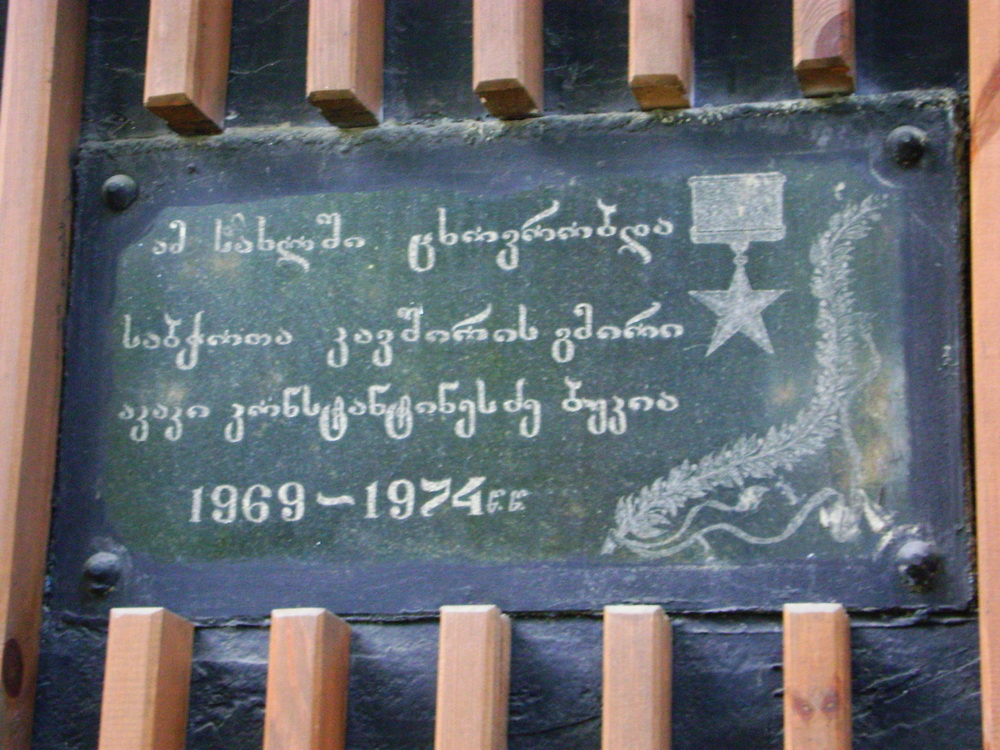 ამ სახლში ცხოვრობდა
საბჭოთა კავშირის გმირი
აკაკი კონსტანტინესძე ბუკია
1969-1974 წ.წ.